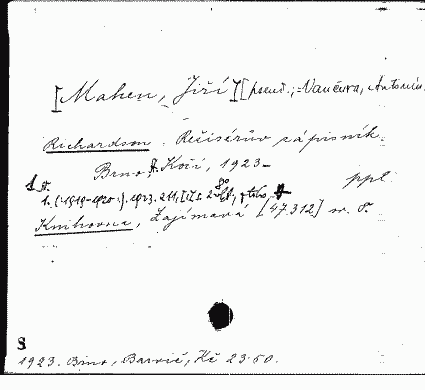 [Mahen, Jiří] [pseud.; = Vančura, Antonín.
Richardson. Režisérův zápisník.
Brno, A. Kočí, 1923 -
1. sv. ppl.
1. (: 1919-1920 :). 1923. 211, [1] s.
Knihovna, Zajímavá [47.312] sv. 8.
8
1923. Brno, Barvič, Kč 23·50.